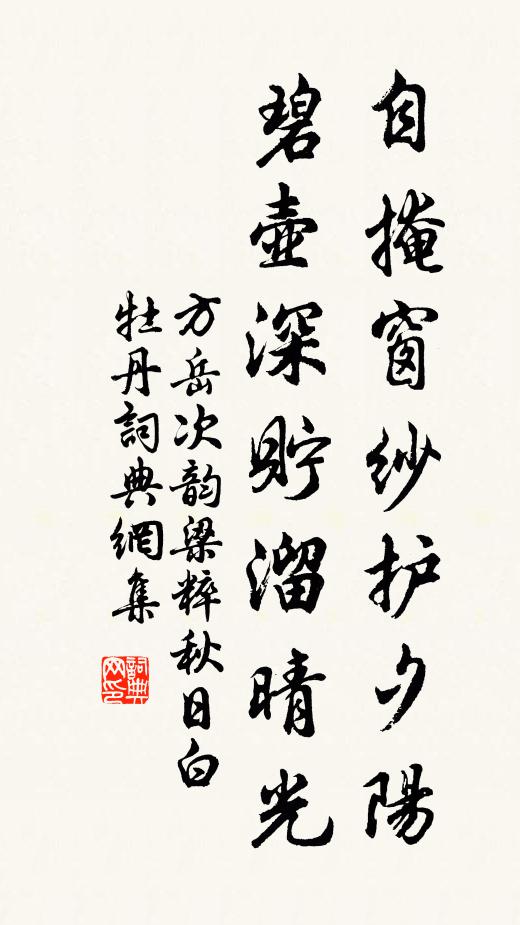 自掩窗纱护夕陽
碧壺深貯溜晴光
方岳次韵梁粹秋日白
牡丹詞典網集
詞典网印